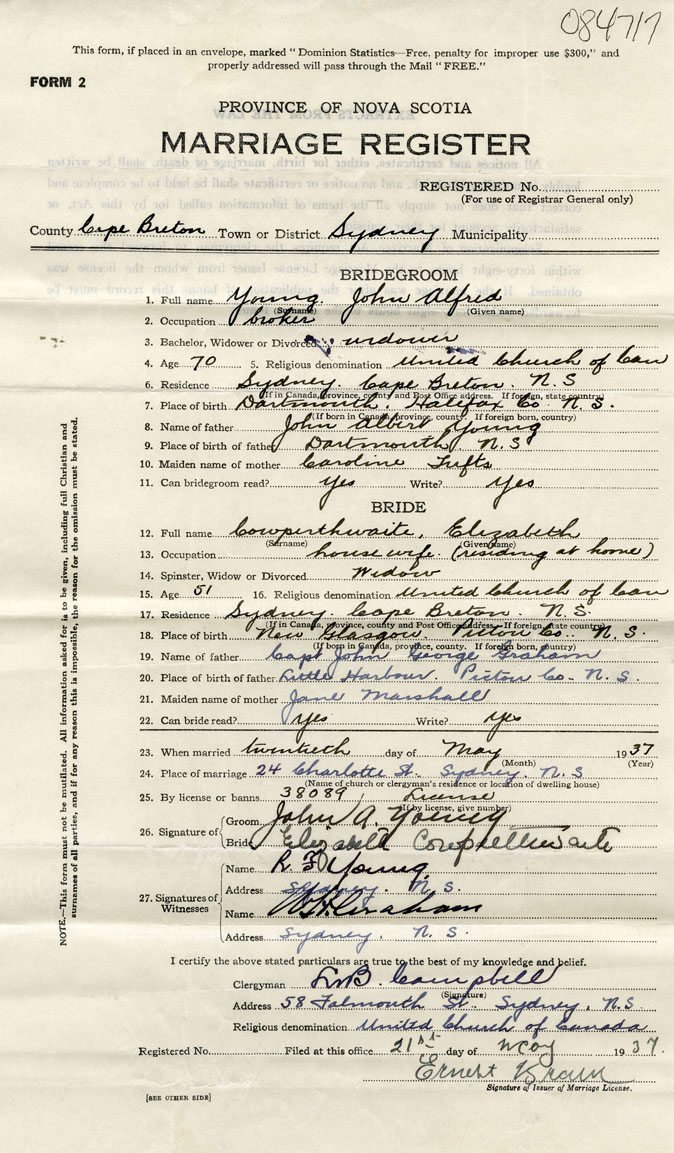 084717
This form, if placed in an envelope, marked "Dominion Statistics—Free, penalty for improper use $300," and
properly addressed will pass through the Mail "FREE."
FORM 2
PROVINCE OF NOVA SCOTIA
MARRIAGE REGISTER
REGISTERED No.
(For use of Registrar General only)
County Cape Breton Town or District Sydney Municipality
BRIDEGROOM
1. Full name Young John Alfred
(Surname) (Given name)
2. Occupation broker
3. Bachelor, Widower or Divorced widower
4. Age 70 5. Religious denomination United Church of Can
6. Residence Sydney. Cape Breton. N.S
(If in Canada, province, county and Post Office address. If foreign, state country)
7. Place of birth Dartmouth. Halifax Co. N.S.
(If born in Canada, province, county. If foreign born, country)
8. Name of father John Albert Young
9. Place of birth of father Dartmouth N.S
10. Maiden name of mother Caroline Tufts
11. Can bridegroom read? Yes Write? Yes
BRIDE
12. Full name Cowperthwaite, Elizabeth
(Surname) (Given name)
13. Occupation housewife. (residing at home)
14. Spinster, Widow or Divorced Widow
15. Age 51 16. Religious denomination United Church of Can
17. Residence Sydney. Cape Breton. N.S.
(If in Canada, province, county and Post Office address. If foreign, state country)
18. Place of birth New Glasgow Pictou Co. N.S.
(If born in Canada, province, county. If foreign born, country)
19. Name of father Capt John George Graham
20. Place of birth of father Little Harbour. Pictou Co. N.S.
21. Maiden name of mother Jane Marshall
22. Can bride read? Yes Write? Yes
23. When married twentieth day of May 1937
(Month) (Year)
24. Place of marriage 24 Charlotte St. Sydney. N.S
(Name of church or clergyman's residence or location of dwelling house)
25. By license or banns 38089 License
(If by license, give number)
26. Signature of Groom John A. Young
Bride Elizabeth Cowperthwaite
27. Signatures of Witnesses
Name Young
Address Sydney. N.S.
Name Graham
Address Sydney. N.S.
I certify the above stated particulars are true to the best of my knowledge and belief.
Clergyman Campbell
(Signature)
Address 58 Falmouth St. Sydney. N.S
Religious denomination United Church of Canada
Registered No. Filed at this office 21st day of May 1937.
Ernest
Signature of Issuer of Marriage License.
[SEE OTHER SIDE]
NOTE.—This form must not be mutilated. All information asked for is to be given, including full Christian and
surnames of all parties, and if for any reason this is impossible, the reason for the omission must be stated.